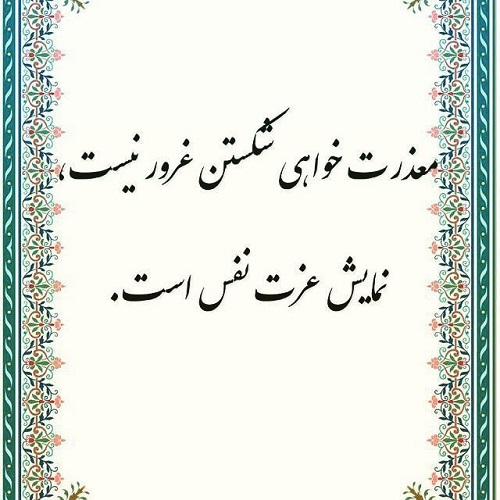 معذرت خواهی شکستن غرور نیست،
نمایش عزت نفس است.